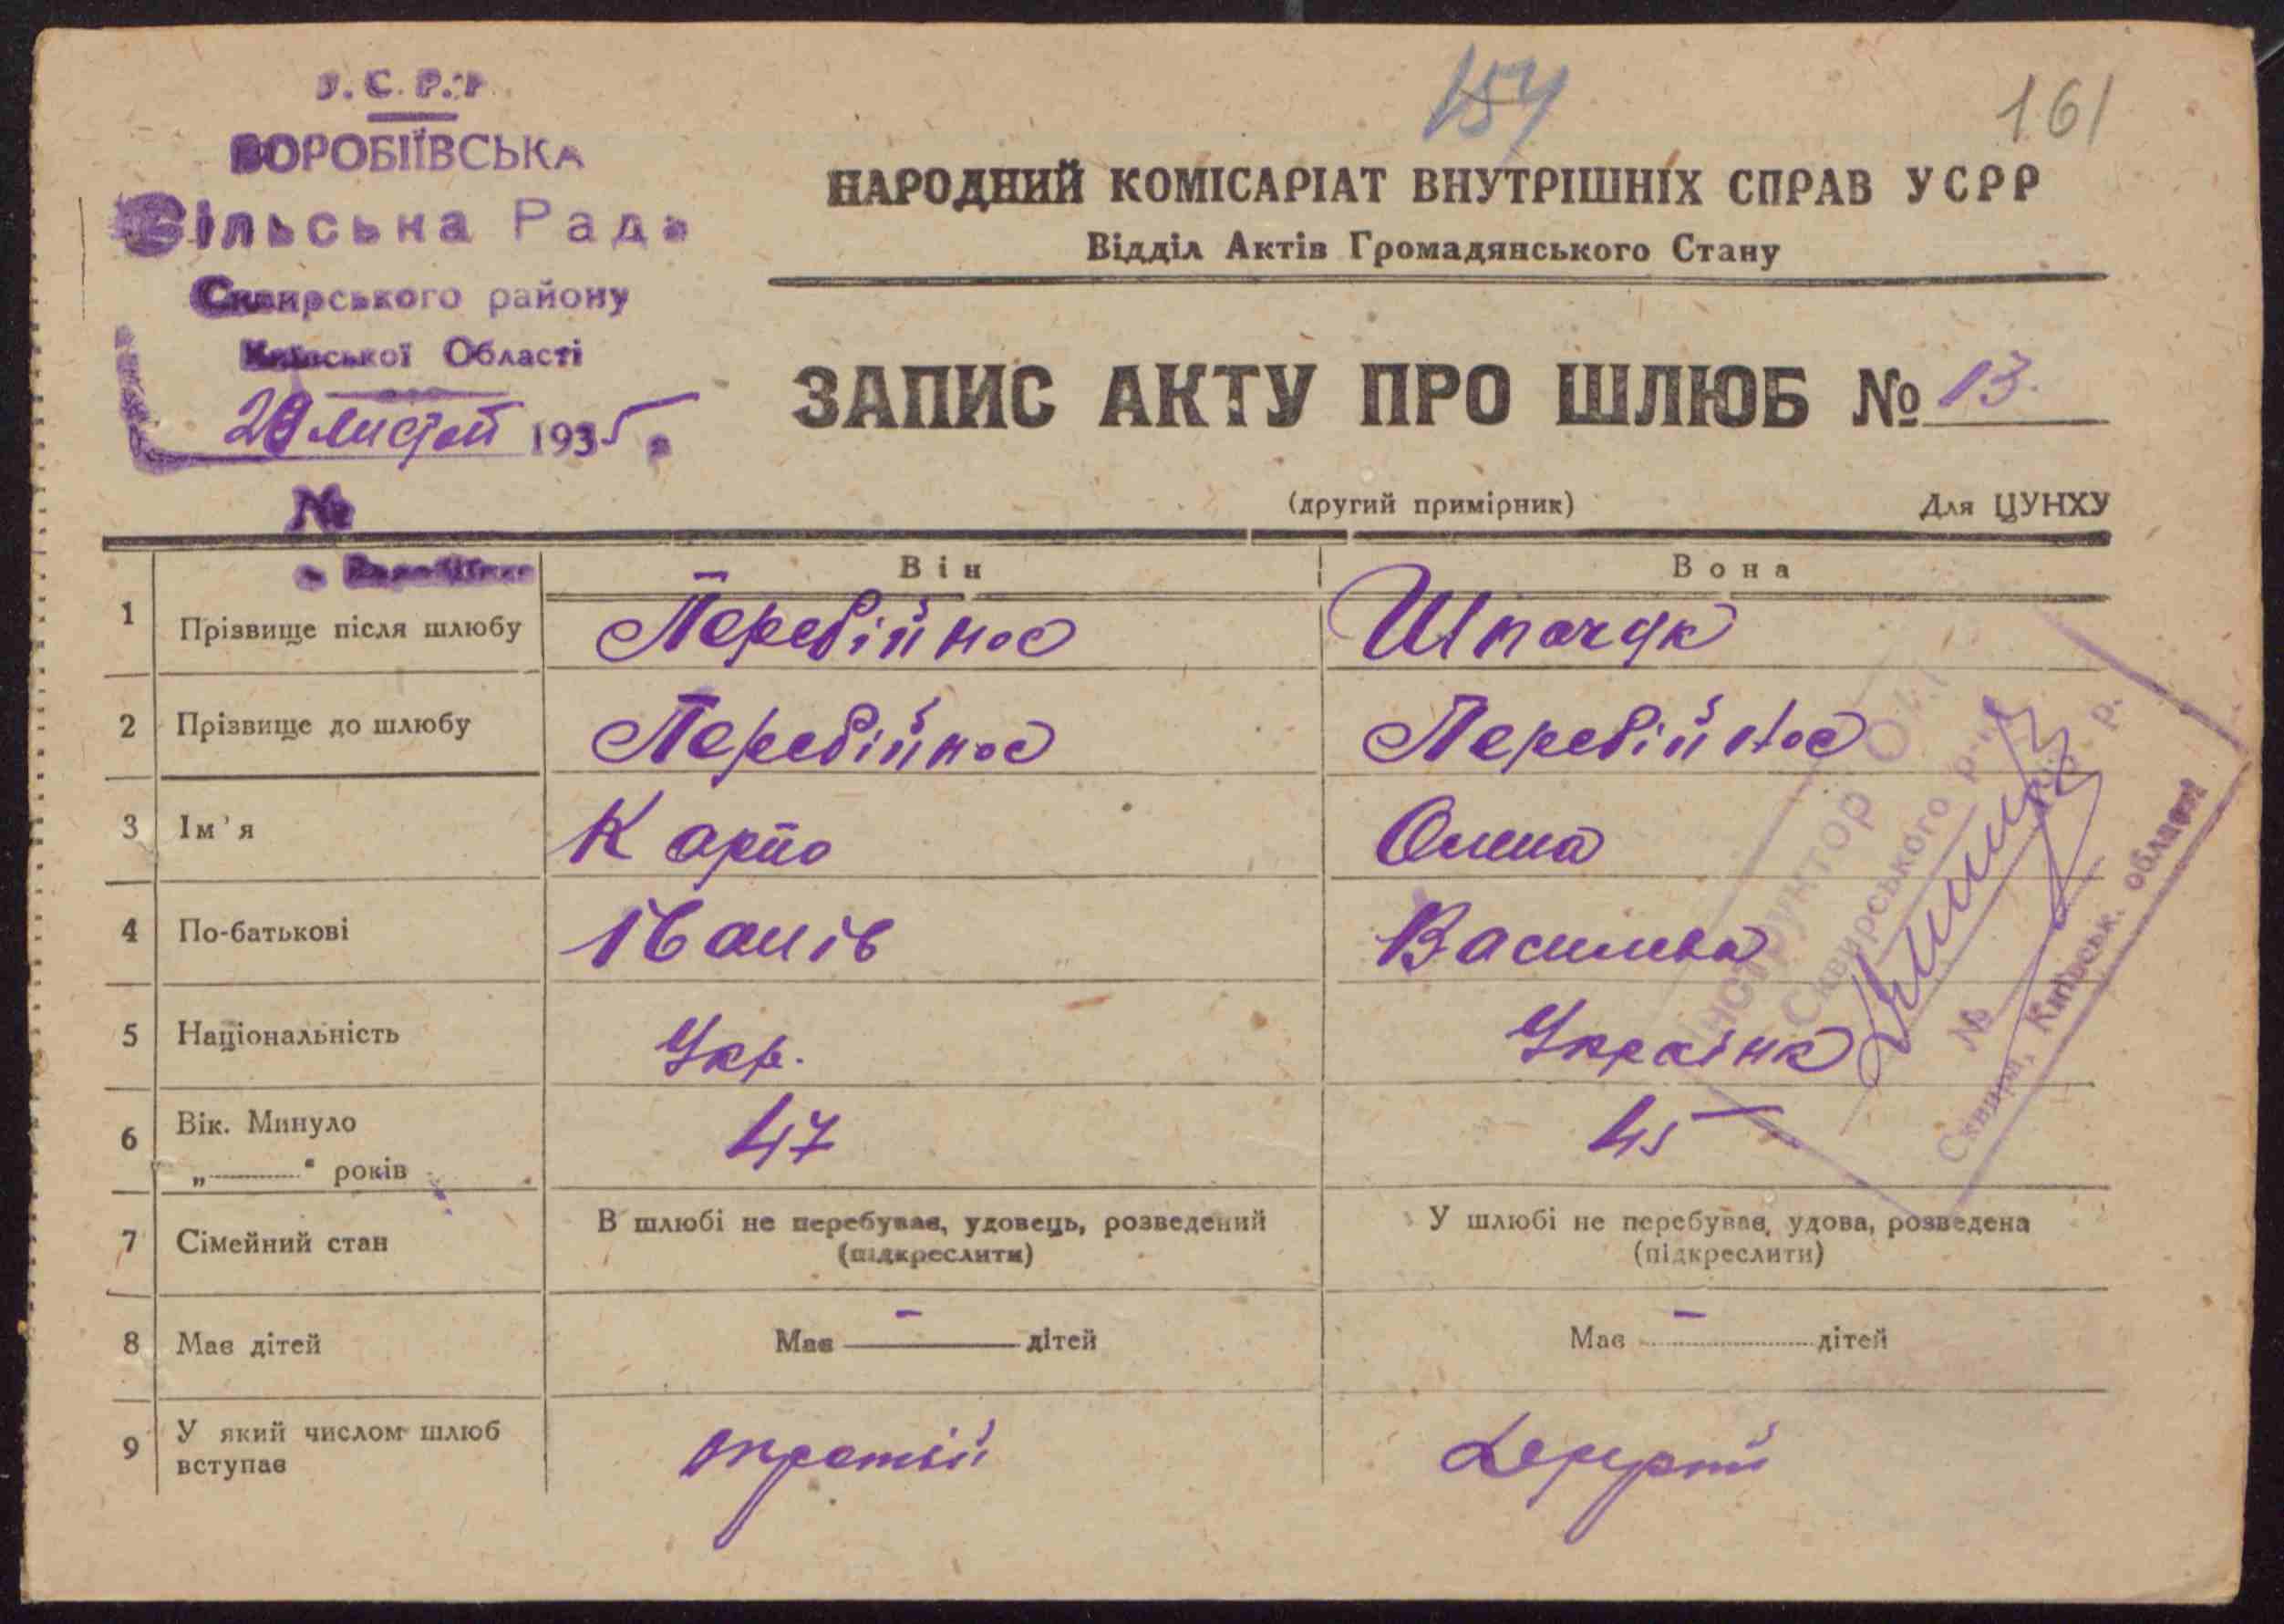 У.С.Р.Р.
154
161
ВОРОБІЇВСЬКА
Сільська Рада
Сквирського району
Київської Області
1935
№
НАРОДНИЙ КОМІСАРІАТ ВНУТРІШНІХ СПРАВ УСРР
Відділ Актів Громадянського Стану
ЗАПИС АКТУ ПРО ШЛЮБ № 13.
(другий примірник) Для ЦУНХУ
Він Вона
1 Прізвище після шлюбу Перебійнос Шпачук
2 Прізвище до шлюбу Перебійнос Перебійнос
3 Ім'я Карпо Олена
4 По-батькові Іванів Василева
5 Національність Укр. Українк
6 Вік. Минуло 47 45
„ “ років
7 Сімейний стан В шлюбі не перебував, удовець, розведений У шлюбі не перебував, удова, розведена
(підкреслити) (підкреслити)
8 Має дітей Має – дітей Має – дітей
9 У який числом шлюб
вступав
Інструктор
Сквирського р-н
№
Сквира, Київськ. області